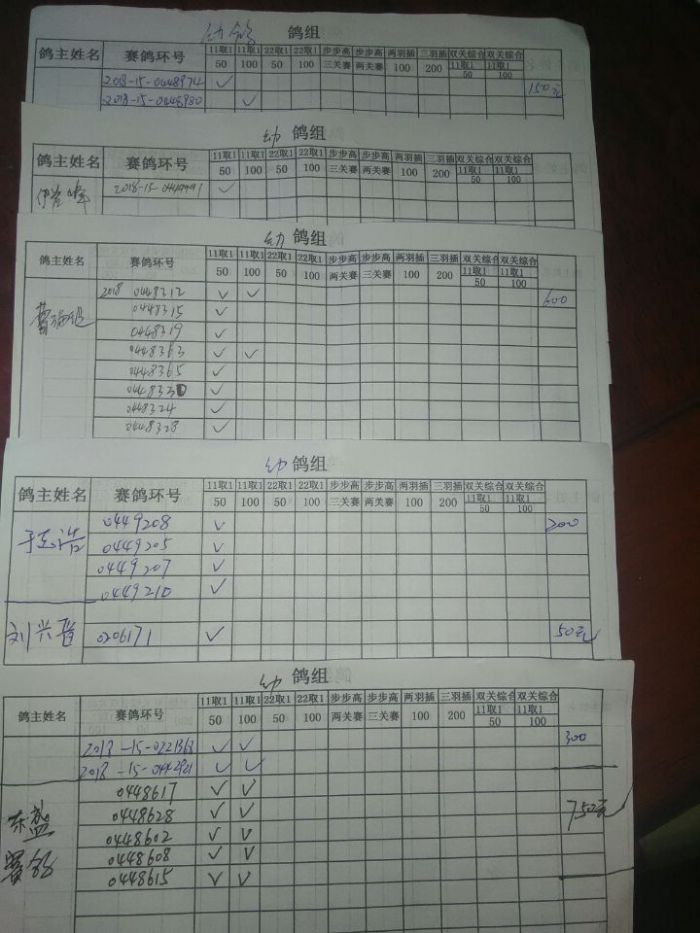 幼鸽 鸽组
鸽主姓名 赛鸽环号 11取1 11取1 22取1 22取1 步步高 步步高 两羽插 三羽插 双关综合 双关综合
50 100 50 100 三关赛 两关赛 100 200 11取1 11取1
50 100
2018-15-0448974 ✓ 150元
2018-15-0448980 ✓
幼 鸽组
鸽主姓名 赛鸽环号 11取1 11取1 22取1 22取1 步步高 步步高 两羽插 三羽插 双关综合 双关综合
50 100 50 100 三关赛 两关赛 100 200 11取1 11取1
50 100
2018-15- ✓
幼 鸽组
鸽主姓名 赛鸽环号 11取1 11取1 22取1 22取1 步步高 步步高 两羽插 三羽插 双关综合 双关综合
50 100 50 100 两关赛 三关赛 100 200 11取1 11取1
50 100
2018 0448312 ✓ ✓ 600
0448315 ✓
0448319 ✓
0448363 ✓ ✓
0448365 ✓
044833 ✓
0448324 ✓
0448328 ✓
幼 鸽组
鸽主姓名 赛鸽环号 11取1 11取1 22取1 22取1 步步高 步步高 两羽插 三羽插 双关综合 双关综合
50 100 50 100 三关赛 两关赛 100 200 11取1 11取1
50 100
0449208 ✓ 200
0449205 ✓
0449207 ✓
0449210 ✓
刘兴晋 0206171 ✓ 50元
幼 鸽组
鸽主姓名 赛鸽环号 11取1 11取1 22取1 22取1 步步高 步步高 两羽插 三羽插 双关综合 双关综合
50 100 50 100 两关赛 三关赛 100 200 11取1 11取1
50 100
2018-15-0221363 ✓ ✓ 300
2018-15-0442921 ✓ ✓
0448617 ✓ ✓
东盛 0448628 ✓ ✓ 750元
0448602 ✓ ✓
赛鸽 0448608 ✓ ✓
0448615 ✓ ✓